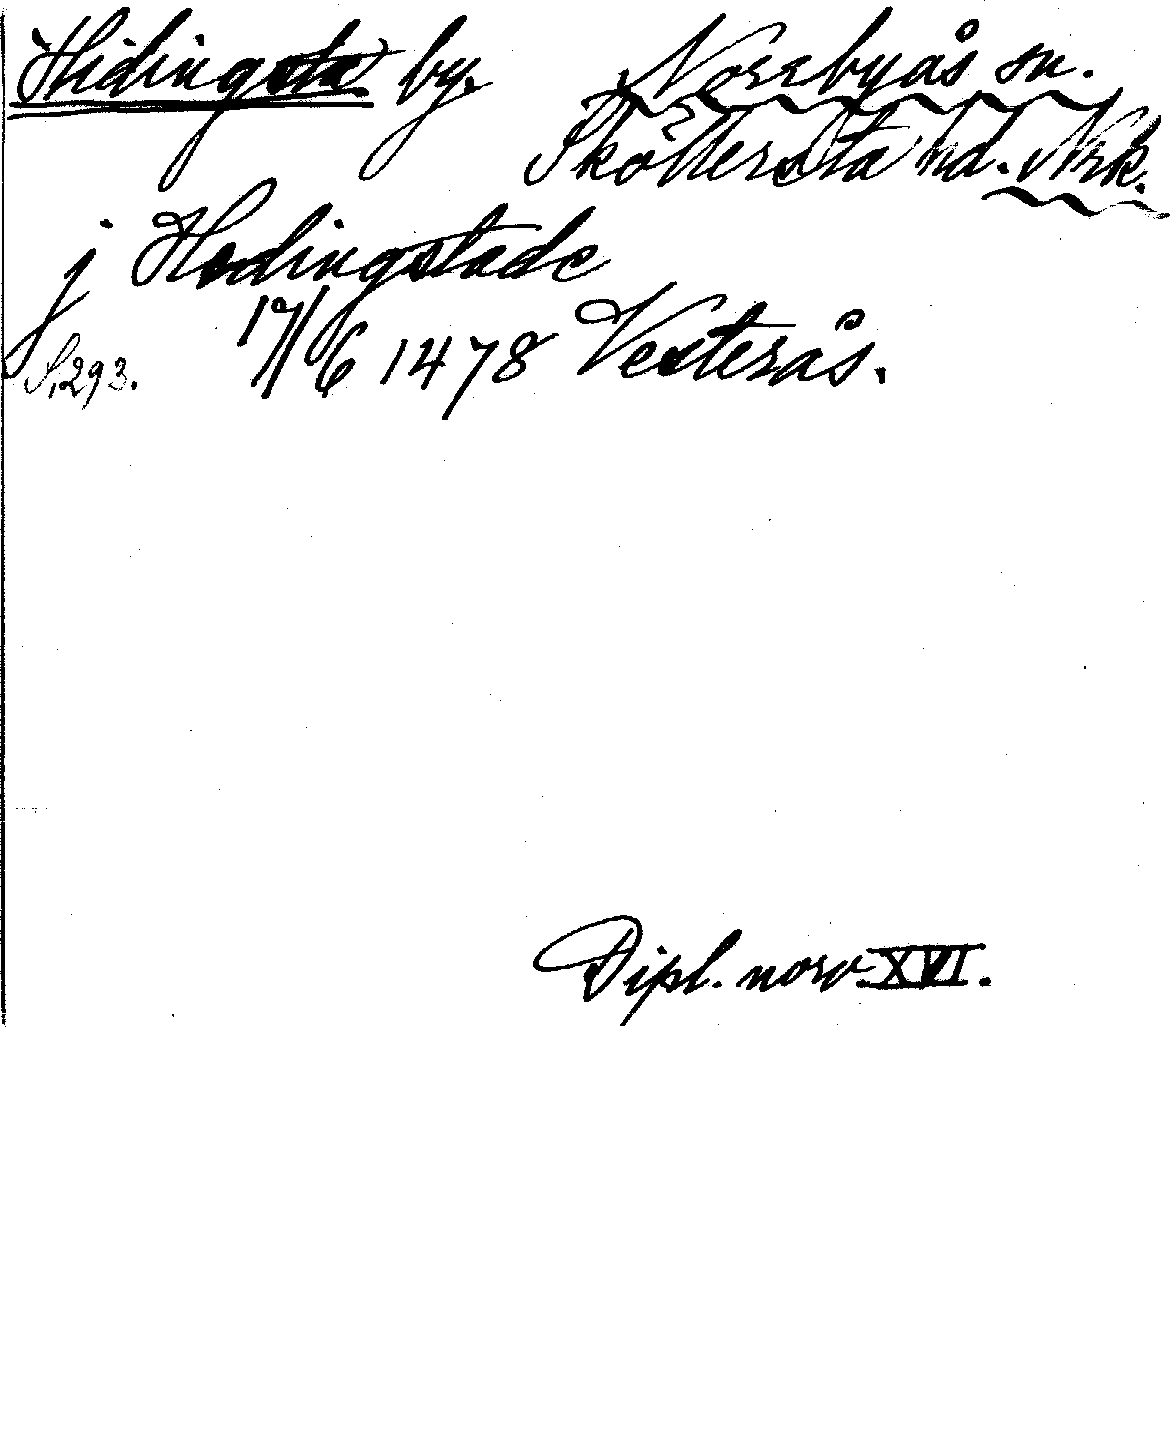 Hidingsta by. Norrbyås sn.
Sköllersta hd. Nrk.
j Hedingstade
S. 293. 17/6 1478 Vesterås.
Dipl. norv. XVI.